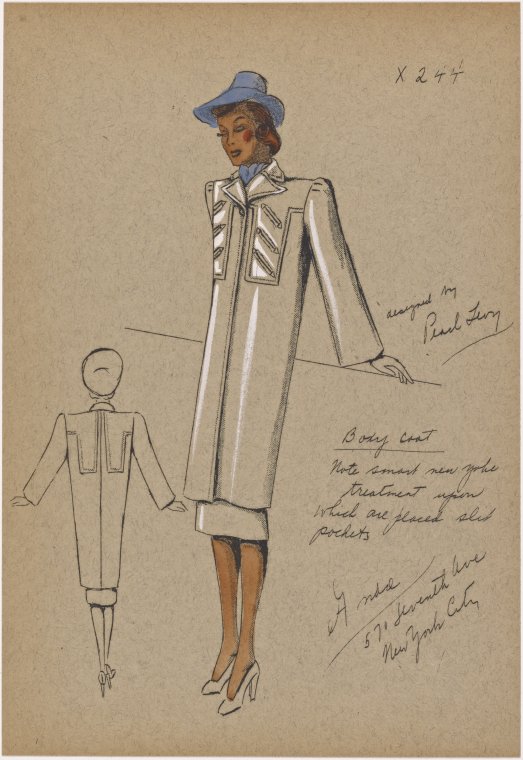 X 244
designed by
Pearl Levy
Body coat
Note smart new yoke
treatment upon
which are placed slit
pockets
570 Seventh Ave
New York City